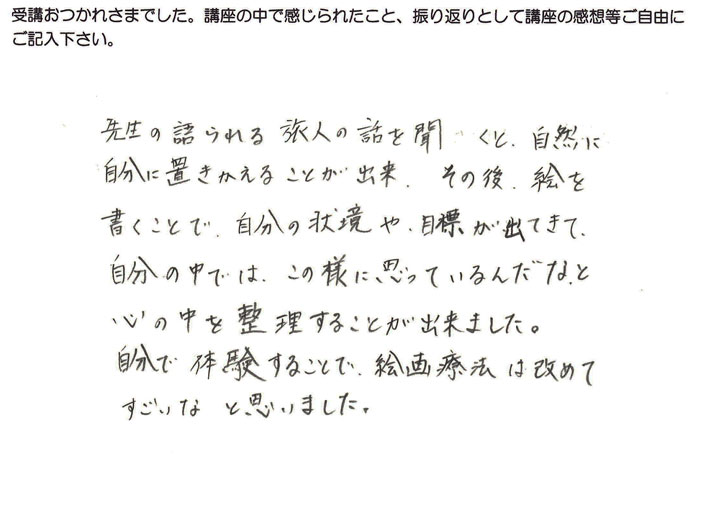 受講おつかれさまでした。講座の中で感じられたこと、振り返りとして講座の感想等ご自由に
ご記入下さい。
先生の語られる旅人の話を聞くと、自然に
自分に置きかえることが出来、その後、絵を
書くことで、自分の状境や、目標が出てきて、
自分の中では、この様に思っているんだな、と
心の中を整理することが出来ました。
自分で体験することで、絵画療法は改めて
すごいなと思いました。